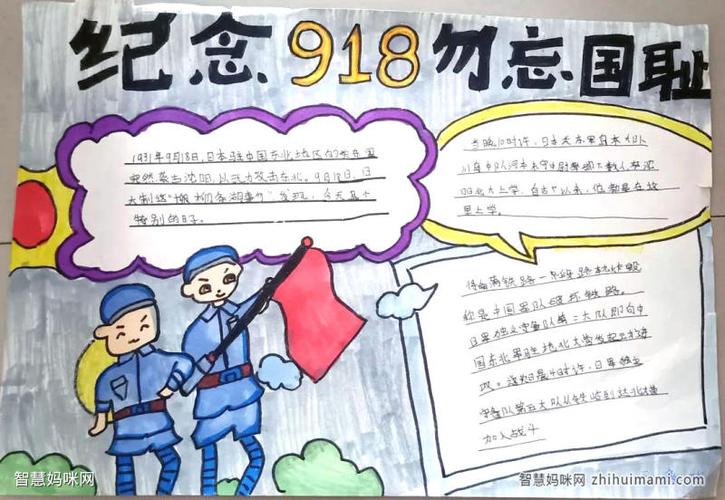 纪念918勿忘国耻
1931年9月18日,日本驻中国东北地区的关东军
突然袭击沈阳,以武力攻击东北。9月18日,日
制造"柳条湖事件"发现,今天是个
特别的日子。
当晚10时许,日本关东军
里上学。
将南满铁路一段路轨炸毁
称是中国军队破坏铁路。
日军独立守备队第二大队即向中
国东北军驻地北大营发起
攻。4时许,日军独立
守备队第五大队从铁岭到达北大营
加入战斗
智慧妈咪网
智慧妈咪网 zhihuimami.com